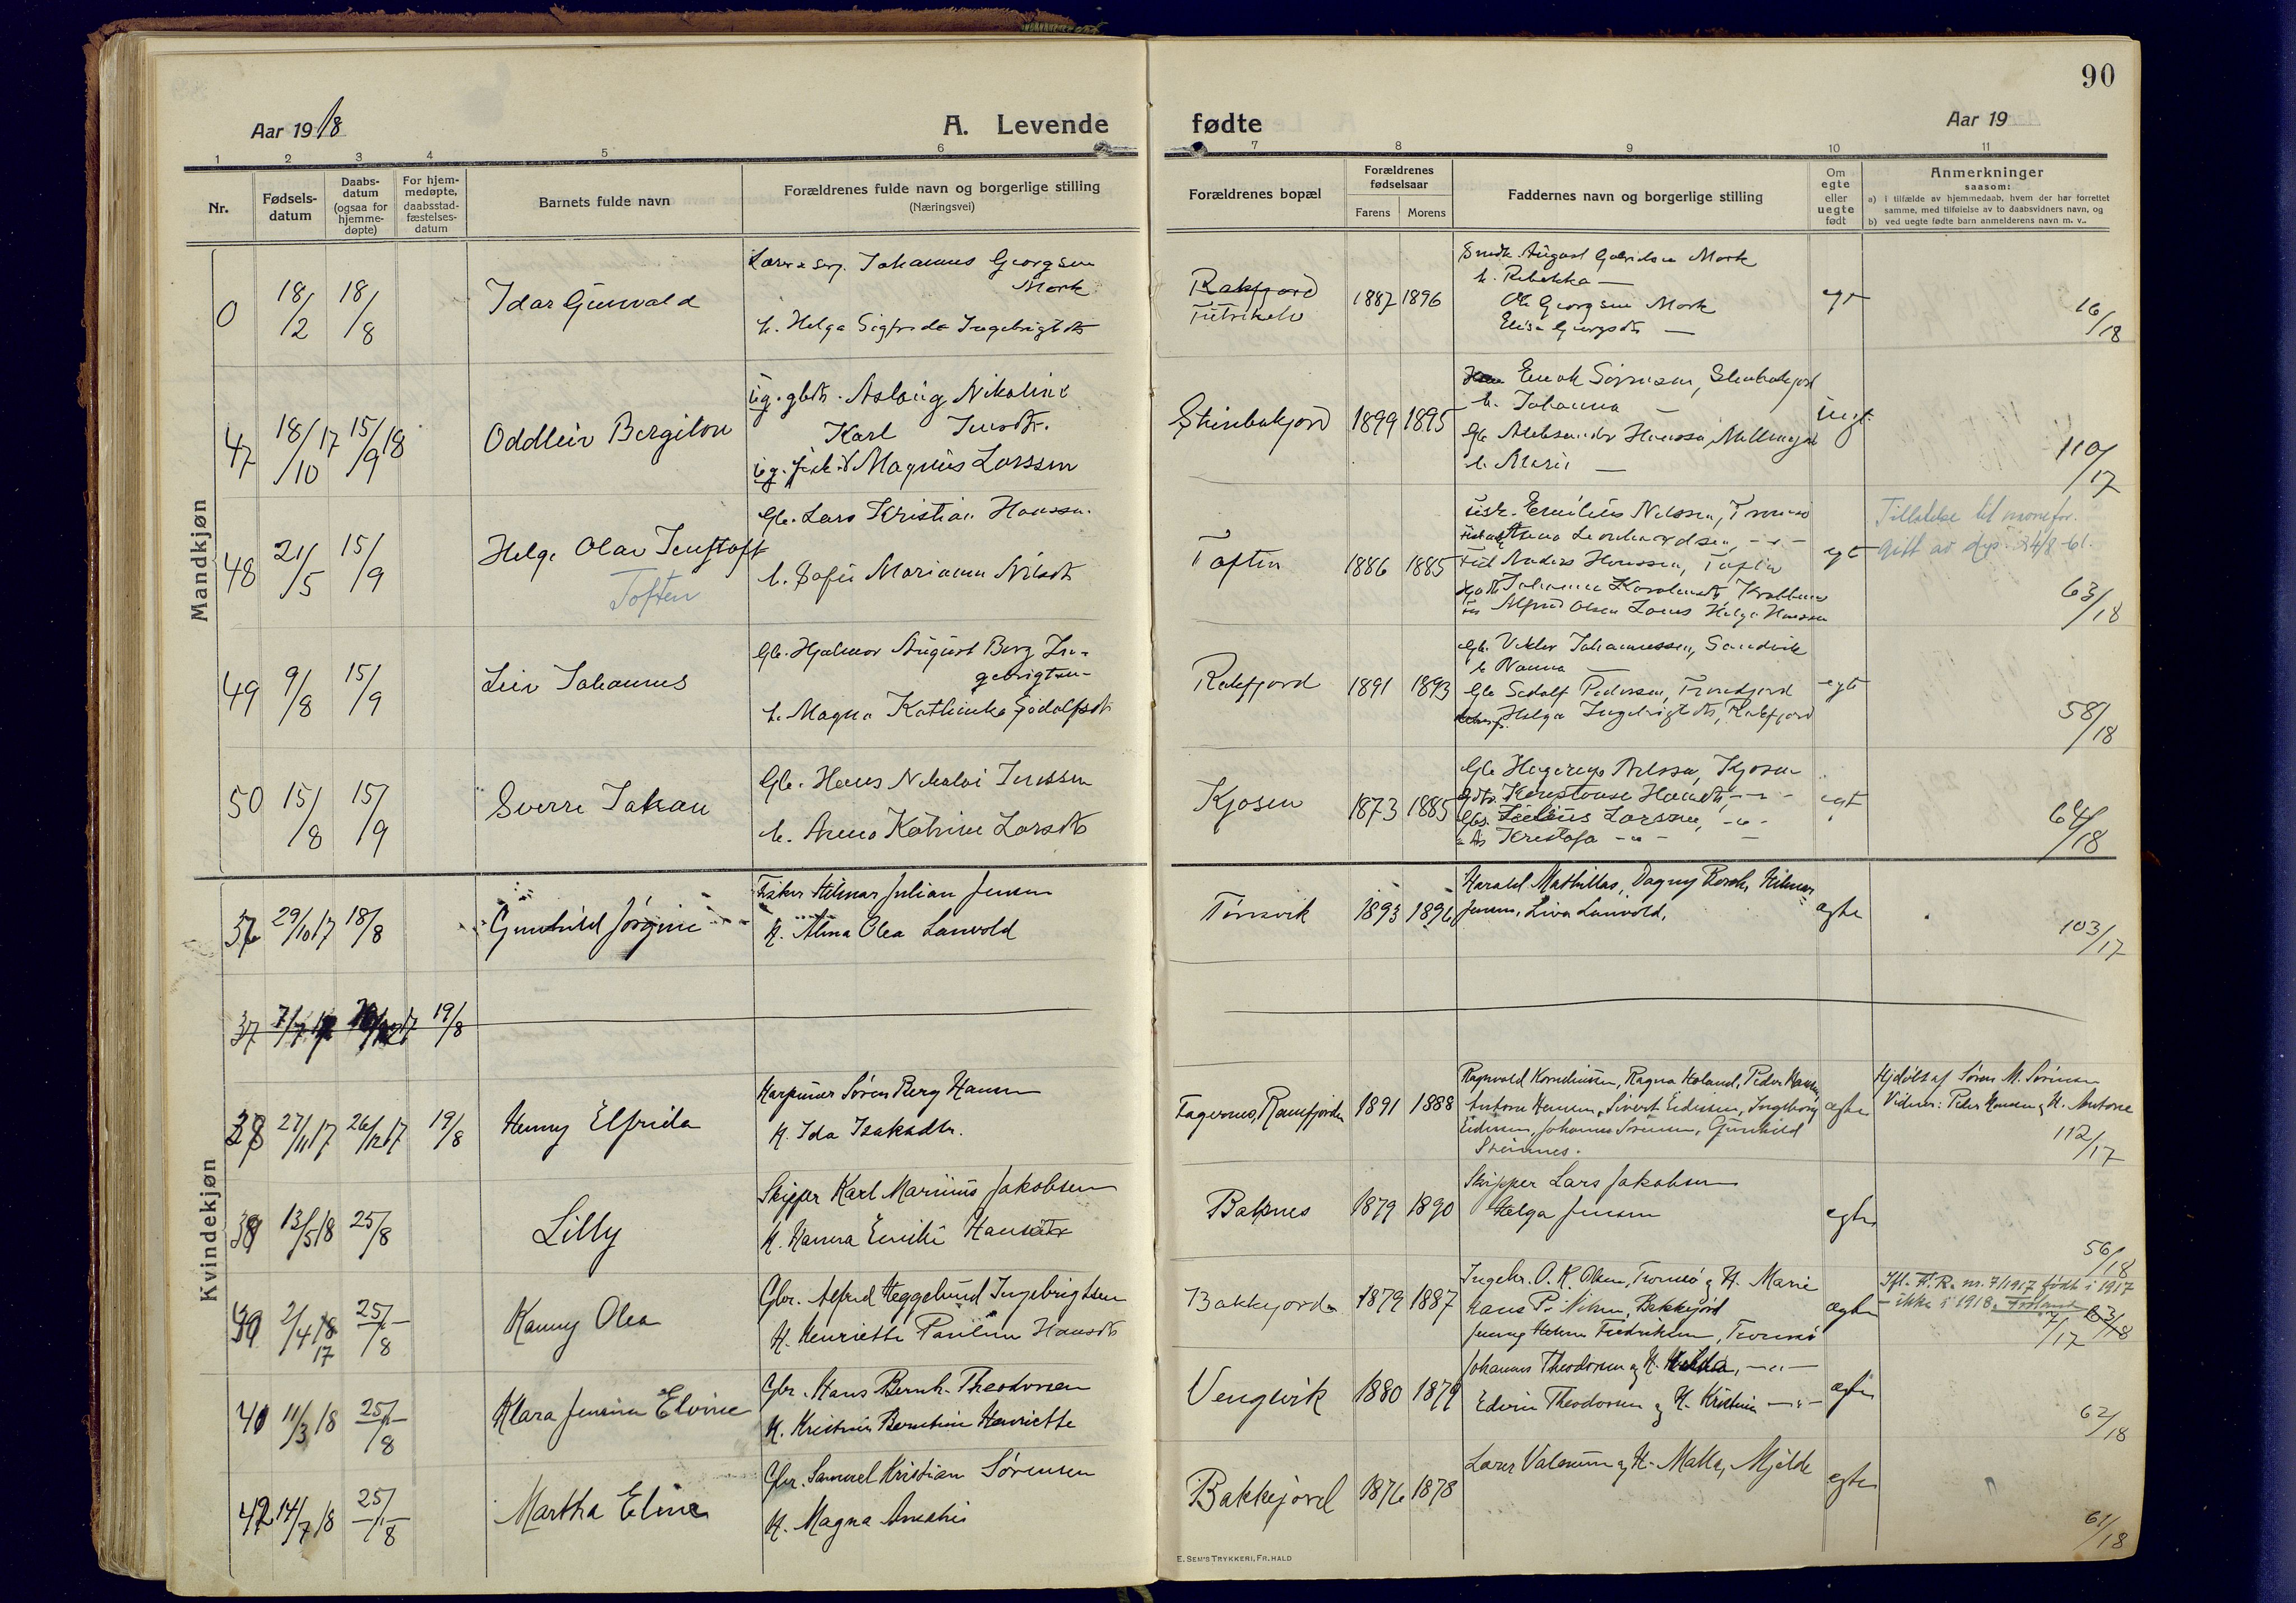 90
Aar 1918
A. Levende fødte
Aar 19
1 2 3 4 5 6 7 8 9 10 11
Nr.
Fødsels-
datum
Daabs-
datum
(ogsaa for
hjemme-
døpte)
For hjem-
medøpte,
daabsstad-
fæstelses-
datum
Barnets fulde navn
Forældrenes fulde navn og borgerlige stilling
(Næringsvei)
Forældrenes bopæl
Forældrenes
fødselsaar
Farens Morens
Faddernes navn og borgerlige stilling
Om
egte
eller
uegte
født
Anmerkninger
saasom:
a) i tilfælde av hjemmedaab, hvem der har forrettet
samme, med tilføielse av to daabsvidners navn, og
b) ved uegte fødte barn anmelderens navn m. v..
Mandkjøn
0 18/2 18/8
Idar Gunvald
Johannes Georgsen
Mork
h. Helga Sigfrida Ingebrigtdtr
Rakfjord
1887 1896
August Gabrielsen Mork
h. Rebekka —
Ole Georgsen Mork
Elise Georgsdtr —
egt
16/18
47 18/10 17 15/9 18
Oddleiv Bergiton
ug. gbdtr. Aslaug Nikoline
Karl Jensdtr.
ug. fisk. Magnus Larssen
1899 1895
Enok Sørensen,
h. Johanna —
Gb Aleksander Hanssen,
h. Marie —
uegt.
110/17
48 21/5 15/9
Helge Olav Jentoft
Toften
Gb. Lars Kristian Hanssen
h. Sofie Marianna Nilsdtr
Toften
1886 1885
Emilius Nilssen, Tromsø
Anders Hanssen, Toften
Alfred Olsen Helga Hanssen
egt
Tillatelse til
63/18
49 9/8 15/9
Leiv Johannes
Gb. Hjalmar August Berg In-
gebrigtsen
h. Magna Kathinka Sedolfsdtr
Rakfjord
1891 1893
Gb. Viktor Johannessen, Sandvik
h Nanna —
Gb Sedolf Pedersen,
Helga Ingebrigtsdtr, Rakfjord
egt
58/18
50 15/8 15/9
Sverre Johan
Gb. Hans Nikolai Jenssen
h. Anna Katrine Larsdtr
Kjosen
1873 1885
Gb Hagerup Nilssen, Kjosen
Julius Larssen, -"-
Kristofa -"-
egt
64/18
Kvindekjøn
36 29/10 17 18/8
Gunhild Jørgine
Fisker Hilmar Julian Jensen
H. Alma Olea Lanvold
Tønsvik
1893 1896
Harald Mathillas, Dagny Hilmar
Jensen, Liva Lanvold.
egte
103/17
37 19/8
38 27/11 17 26/12 17 19/8
Henny Elfrida
Harpuner Søren Berg Hansen
H. Ida Isaksdtr.
Fagernes, Ramfjorden
1891 1888
Ragnvald Korneliussen, Ragna Holand, Peder Hansen,
Antone Hansen, Sivert Eidissen, Ingeborg
Eidissen, Johannes Sørensen, Gunhild
Steinnes.
egte
Hjdøbt af Søren M. Sørensen
Vidner: Peder Hansen og H. Antone
112/17
39 13/5 18 25/8
Lilly
Skipper Karl Marinius Jakobsen
H. Hanna Emilie Hansdtr
Baknes
1879 1890
Skipper Lars Jakobsen
Helga Jensen
egte
56/18
40 2/4 18 17 25/8
Kanny Olea
Gbr. Alfred Heggelund Ingebrigtsen
H. Henriette Pauline Hansdtr
Bakkejorda
1879 1887
Ingebr. O. K. Olsen, Tromsø og H. Marie
Hans P. Bakkejord
Jenny Helene Fredriksen, Tromsø
egte
Ifl. F. R. nr. 7/1917 født i 1917
— ikke i 1918.
63/18
7/17
41 11/3 18 25/8
Klara Jensine Elvine
Gbr. Hans Bernh. Theodorsen
H. Kristine Berntine Henriette
Vengsvik
1880 1879
Johannes Theodorsen og H. Hilda, —"—
Edvin Theodorsen og H. Kristine —"—
egte
62/18
42 14/7 18 25/8
Martha Eline
Gbr. Samuel Kristian Sørensen
H. Magna Amalie
Bakkejord
1876 1878
Lærer og H. Mjelde
egte
61/18
E. SEM'S TRYKKERI, FR.HALD